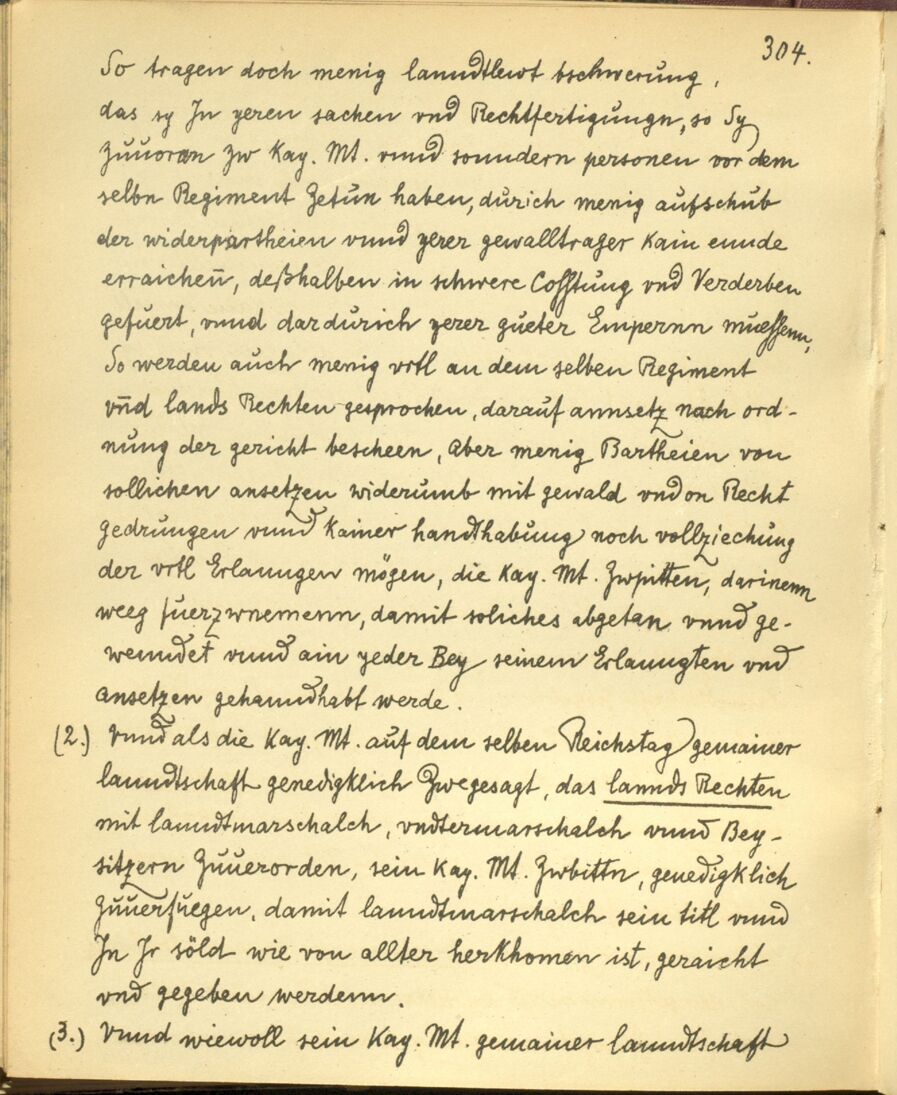 304.
So tragen doch menig lanndtlewt bschwerung,
das sy In yeren sachen vnd Rechtfertigungn, so Sy
Zuuoran zw Kay. Mt. vnnd sonndern personen vor dem
selbn Regiment Zetun haben, durich menig aufschub
der widerpartheien vnnd yerer gewalltrager Kain ennde
erraichen̄, deßhalben in schwere Cosstung vnd Verderben
gefuert, vnnd dardurich yerer gueter Empernn muessenn,
So werden auch menig vrtl an dem selben Regiment
vn̄d lannds Rechten gesprochen, darauf annsetz nach ord-
nung der gericht bescheen, Aber menig Bartheien von
sollichen ansetzen widerumb mit gewald vnd on Recht
gedrungen vnnd Kainer handthabung noch vollziechung
der vrtl Erlanngen mögen, die Kay. Mt. Zwpitten, darinenn
weeg fuerzwnemenn, damit soliches abgetan vnnd ge-
wenndet vnnd ain yeder Bey seinem Erlanngten vnd
ansetzen gehanndhabt werde.
(2.) Vnnd als die Kay. Mt. auf dem selben Reichstag gemainer
lanndtschaft genedigklich Zwegesagt, das lannds Rechten
mit lanndtmarschalch, vndtermarschalch vnnd Bey-
sitzern Zuuerorden, sein Kay. Mt. Zwbittn, genedigklich
Zuuerfuegen, damit lanndtmarschalch sein titl vnnd
In Ir söld wie von allter herkhomen ist, geraicht
vnd gegeben werdenn.
(3.) Vnnd wiewoll sein Kay. Mt. gemainer lanndtschaft